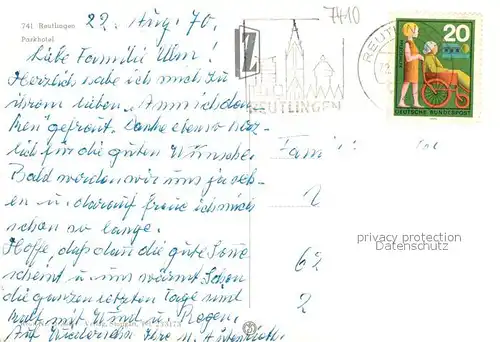 741 Reutlingen
Parkhotel
22. Aug. 70.
7410
Liebe Familie Ulm!
Herzlich habe ich mich zu
Ihrem lieben "An mich den-
ken" gefreut. Danke ebenso herz-
lich für die guten Wünsche.
Bald werden wir uns ja seh-
en u. darauf freue ich mich
schon so lange.
Hoffe, daß dann die gute Sonne
scheint u. uns wärmt. Schon
die ganzen letzten Tage sind
kalt mit Wind u. Regen.
Auf Wiedersehn Ihre
Z
REUTLINGEN
REUTL
20
DEUTSCHE BUNDESPOST
Fami
2
62
2
privacy protection
Datenschutz